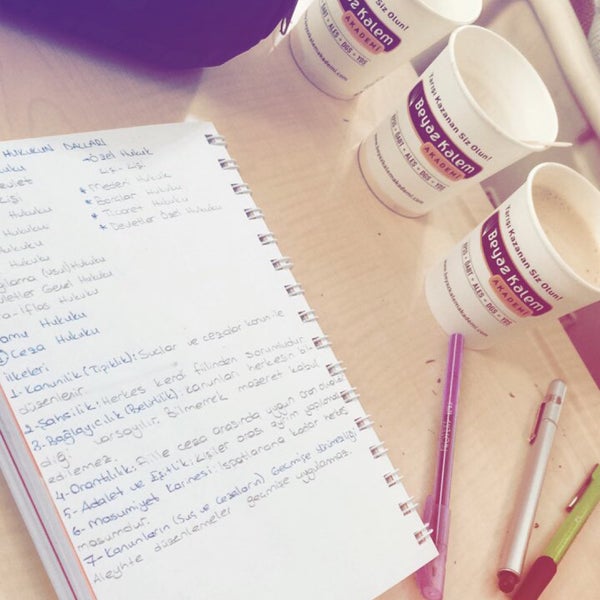 HUKUKUN DALLARI
Özel Hukuk
Kişi - Kişi
* Medeni Hukuk
* Borçlar Hukuku
* Ticaret Hukuku
* Devletler Özel Hukuku
Hukuku
Hukuku
Hukuku
(Usul) Hukuku
Genel Hukuku
Hukuku
Hukuku
Ceza Hukuku
İlkeleri
1- Kanunilik (Tipiklik): Suçlar ve cezalar kanun ile
düzenlenir.
2- Şahsilik: Herkes kendi fiilinden sorumludur.
3- Bağlayıcılık (Belirlilik): Kanunları herkesin bil
diği varsayılır. Bilmemek mazeret kabul
edilemez.
4- Orantılılık: Fiille ceza arasında uygun oran olmalıdır
5- Adalet ve Eşitlik: Kişiler arası ayrım yapılmaz
6- Masumiyet Karinesi: İspatlanana kadar herkes
masumdur.
7- Kanunların (Suç ve Cezaların) Geçmişe Yürümezliği
Aleyhte düzenlemeler geçmişe uygulanmaz.
Siz Olun!
Beyaz Kalem
AKADEMİ
ALES • DGS • YDS
Yarışı Kazanan Siz Olun!
Beyaz Kalem
AKADEMİ
KPSS • ÖABT • ALES • DGS • YDS
www.beyazkalemakademi.com
Yarışı Kazanan Siz Olun!
Beyaz Kalem
AKADEMİ
KPSS • ÖABT • ALES • DGS • YDS
www.beyazkalemakademi.com